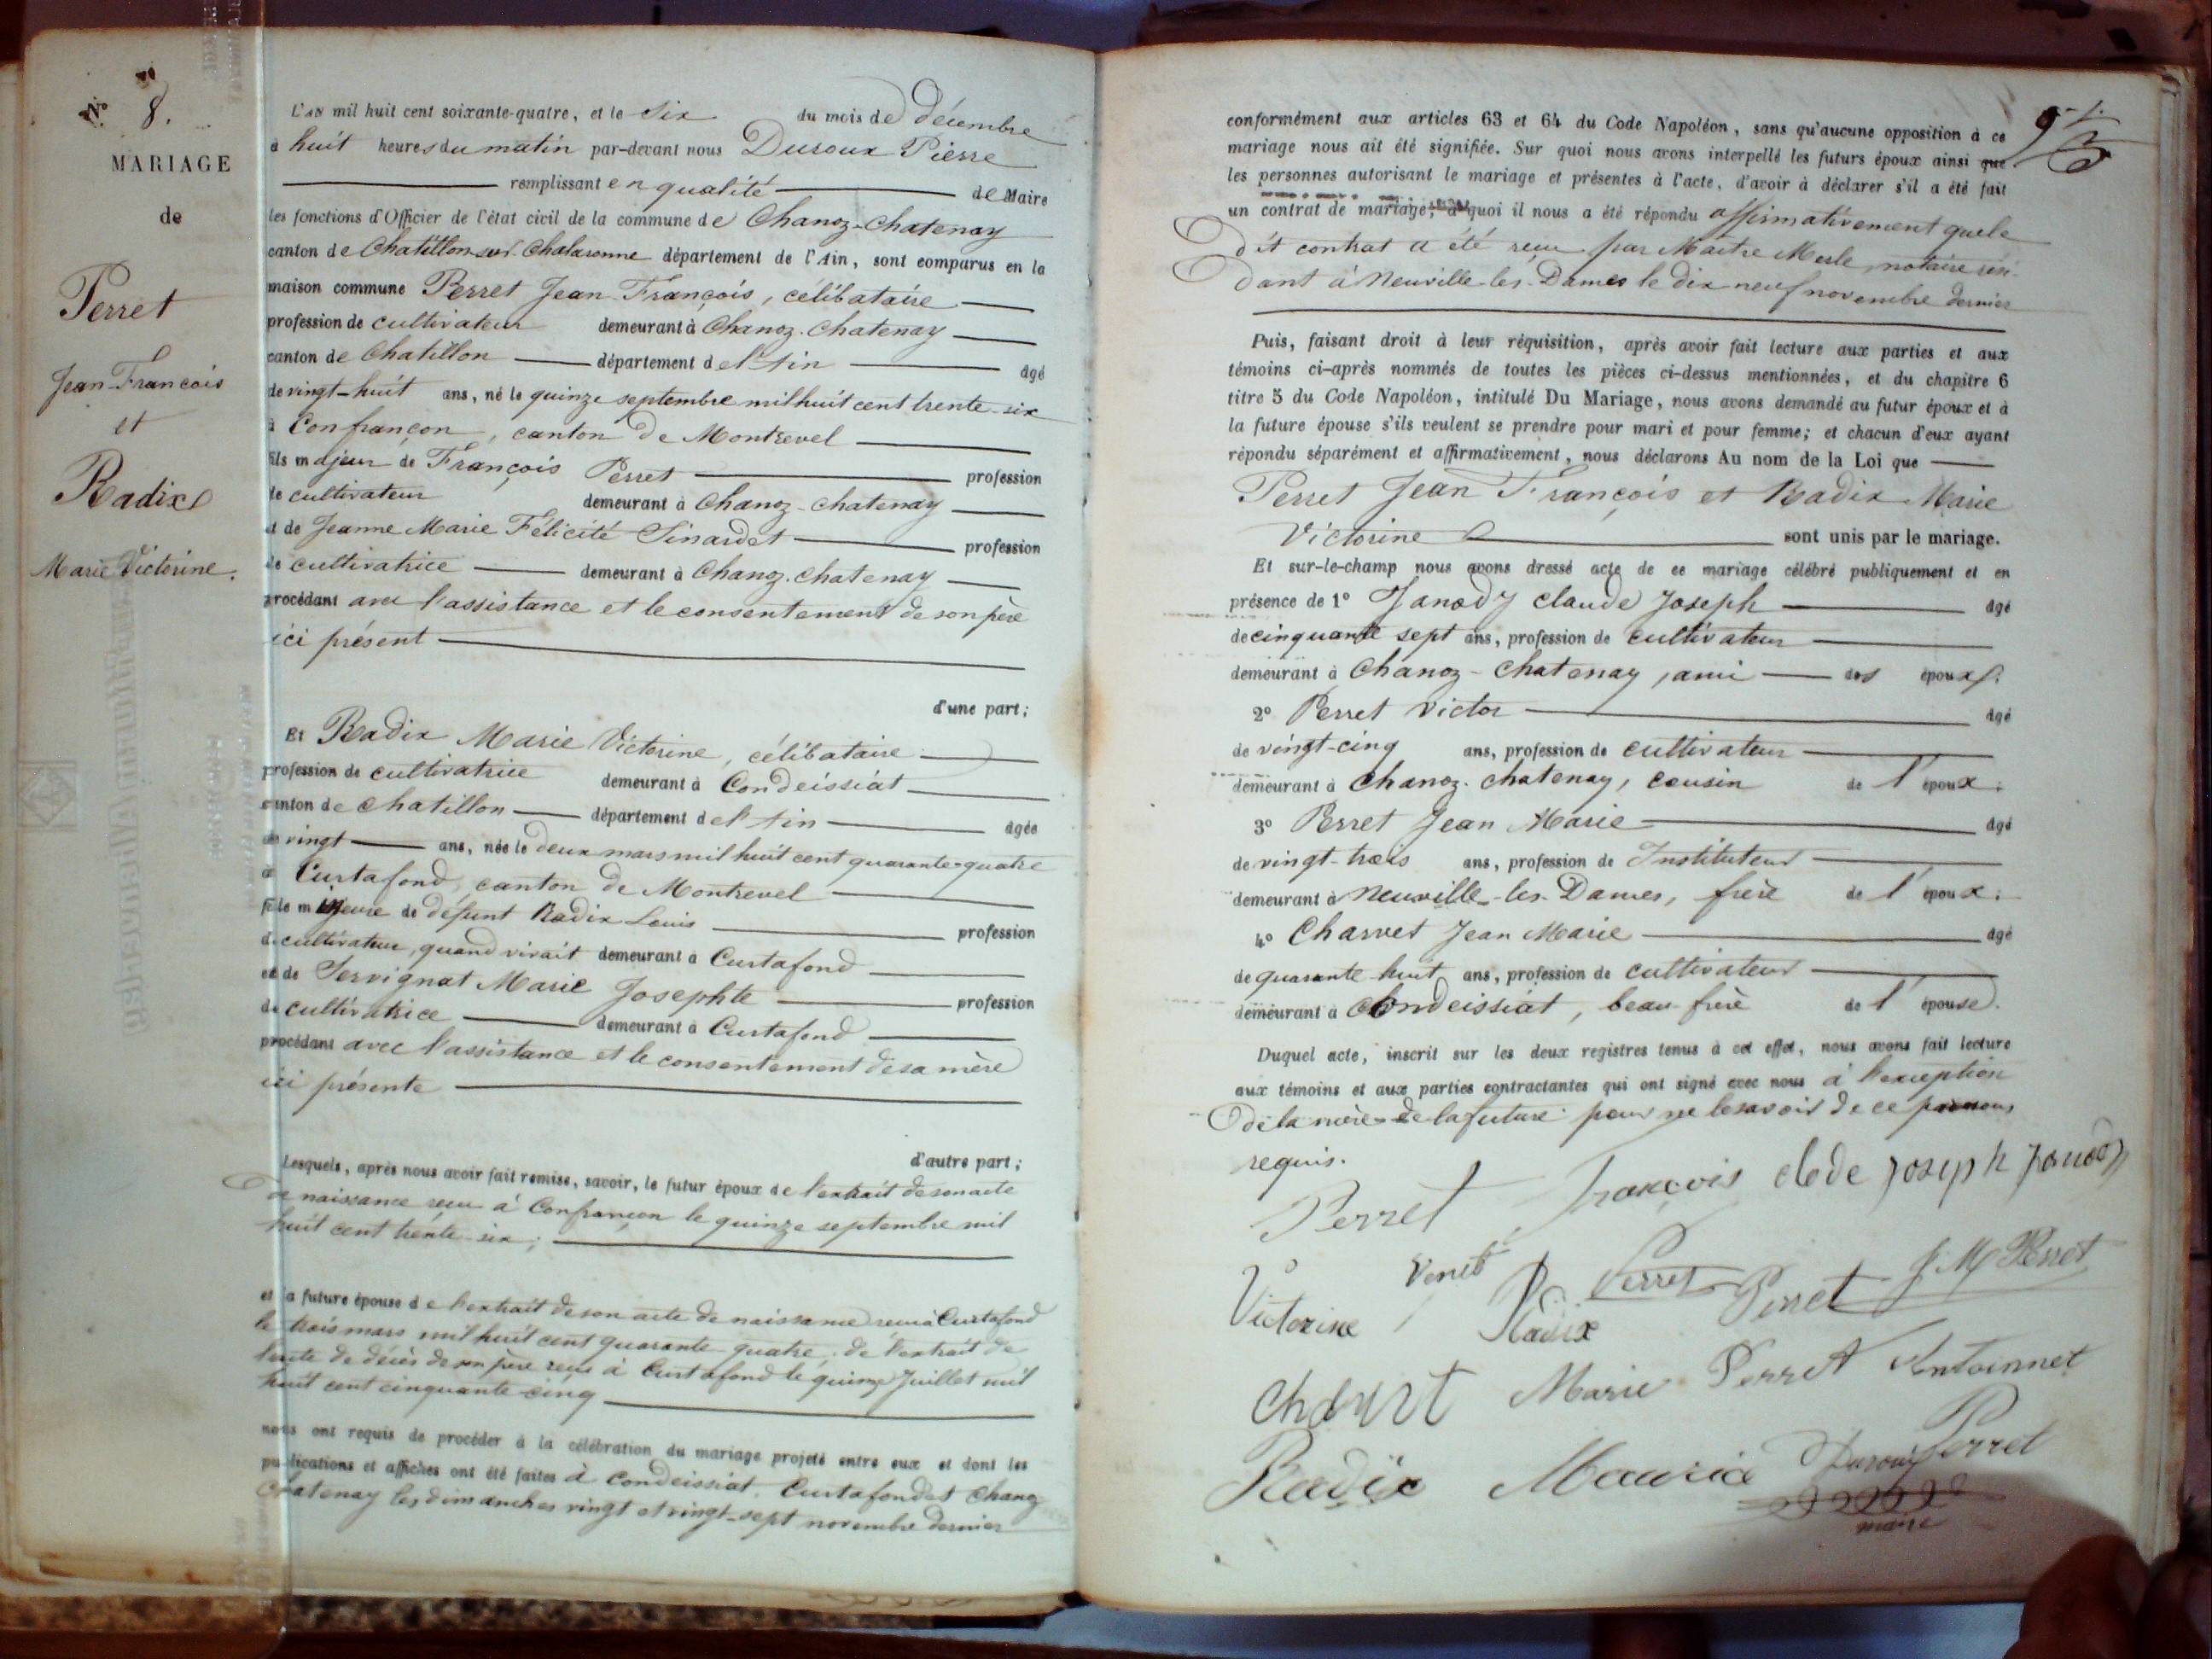 N° 8.
MARIAGE
de
Perret
Jean-François
et
Radix
Marie Victorine.
L'AN mil huit cent soixante-quatre, et le six du mois de décembre
à huit heures du matin par-devant nous Duroux Pierre
remplissant en qualité de Maire
les fonctions d'Officier de l'état civil de la commune de Chanoz-Chatenay
canton de Chatillon-sur-Chalaronne département de l'Ain, sont comparus en la
maison commune Perret Jean-François, célibataire
profession de cultivateur demeurant à Chanoz-Chatenay
canton de Chatillon département de l'Ain âgé
de vingt-huit ans, né le quinze septembre mil huit cent trente-six
à Confrançon, canton de Montrevel
fils majeur de François Perret profession
de cultivateur demeurant à Chanoz-Chatenay
et de Jeanne Marie Félicité Sinardet profession
de cultivatrice demeurant à Chanoz-Chatenay
procédant avec l'assistance et le consentement de son père
ici présent
d'une part;
Et Radix Marie Victorine, célibataire
profession de cultivatrice demeurant à Condeissiat
canton de Chatillon département de l'Ain âgée
de vingt ans, née le deux mars mil huit cent quarante-quatre
à Curtafond, canton de Montrevel
fille mineure de défunt Radix Louis profession
de cultivateur, quand vivait demeurant à Curtafond
et de Servignat Marie Josephte profession
de cultivatrice demeurant à Curtafond
procédant avec l'assistance et le consentement de sa mère
ici présente
d'autre part;
Lesquels, après nous avoir fait remise, savoir, le futur époux de l'extrait de son acte
de naissance reçu à Confrançon le quinze septembre mil
huit cent trente-six;
et la future épouse de l'extrait de son acte de naissance reçu à Curtafond
le trois mars mil huit cent quarante-quatre, de l'extrait de
l'acte de décès de son père reçu à Curtafond le quinze Juillet mil
huit cent cinquante-cinq
nous ont requis de procéder à la célébration du mariage projeté entre eux et dont les
publications et affiches ont été faites à Condeissiat, Curtafond et Chanoz
Chatenay les dimanches vingt et vingt-sept novembre dernier
conformément aux articles 63 et 64 du Code Napoléon, sans qu'aucune opposition à ce
mariage nous ait été signifiée. Sur quoi nous avons interpellé les futurs époux ainsi que
les personnes autorisant le mariage et présentes à l'acte, d'avoir à déclarer s'il a été fait
un contrat de mariage; à quoi il nous a été répondu affirmativement que le
dit contrat a été reçu par Maître Merle, notaire rési-
dant à Neuville-les-Dames le dix neuf novembre dernier
Puis, faisant droit à leur réquisition, après avoir fait lecture aux parties et aux
témoins ci-après nommés de toutes les pièces ci-dessus mentionnées, et du chapitre 6
titre 5 du Code Napoléon, intitulé Du Mariage, nous avons demandé au futur époux et à
la future épouse s'ils veulent se prendre pour mari et pour femme; et chacun d'eux ayant
répondu séparément et affirmativement, nous déclarons Au nom de la Loi que
Perret Jean François et Radix Marie
Victorine sont unis par le mariage.
Et sur-le-champ nous avons dressé acte de ce mariage célébré publiquement et en
présence de 1° Janody Claude Joseph âgé
de cinquante sept ans, profession de cultivateur
demeurant à Chanoz-Chatenay, ami des époux.
2° Perret Victor âgé
de vingt-cinq ans, profession de cultivateur
demeurant à Chanoz-Chatenay, cousin de l'époux;
3° Perret Jean Marie âgé
de vingt-trois ans, profession de Instituteur
demeurant à Neuville-les-Dames, frère de l'époux;
4° Charvet Jean Marie âgé
de quarante huit ans, profession de cultivateur
demeurant à Condeissiat, beau-frère de l'épouse.
Duquel acte, inscrit sur les deux registres tenus à cet effet, nous avons fait lecture
aux témoins et aux parties contractantes qui ont signé avec nous à l'exception
de la mère de la future pour ne le savoir de ce par nous
requis.
Perret François clode joseph Janody
Victorine Radix Perret Perret J. M. Perret
Marie Perret Antoinnet
Radix Mauria Duroux Perret
maire